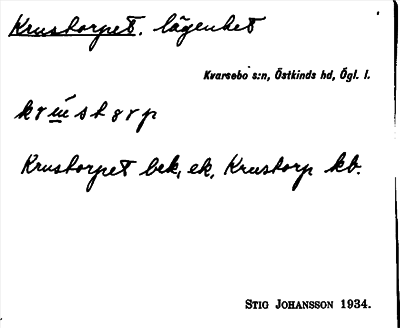 Krustorpet. lägenhet
Kvarsebo s:n, Östkinds hd, Ögl. l.
krústorp
Krustorpet bek, ek, Krustorp kb.
STIG JOHANSSON 1934.